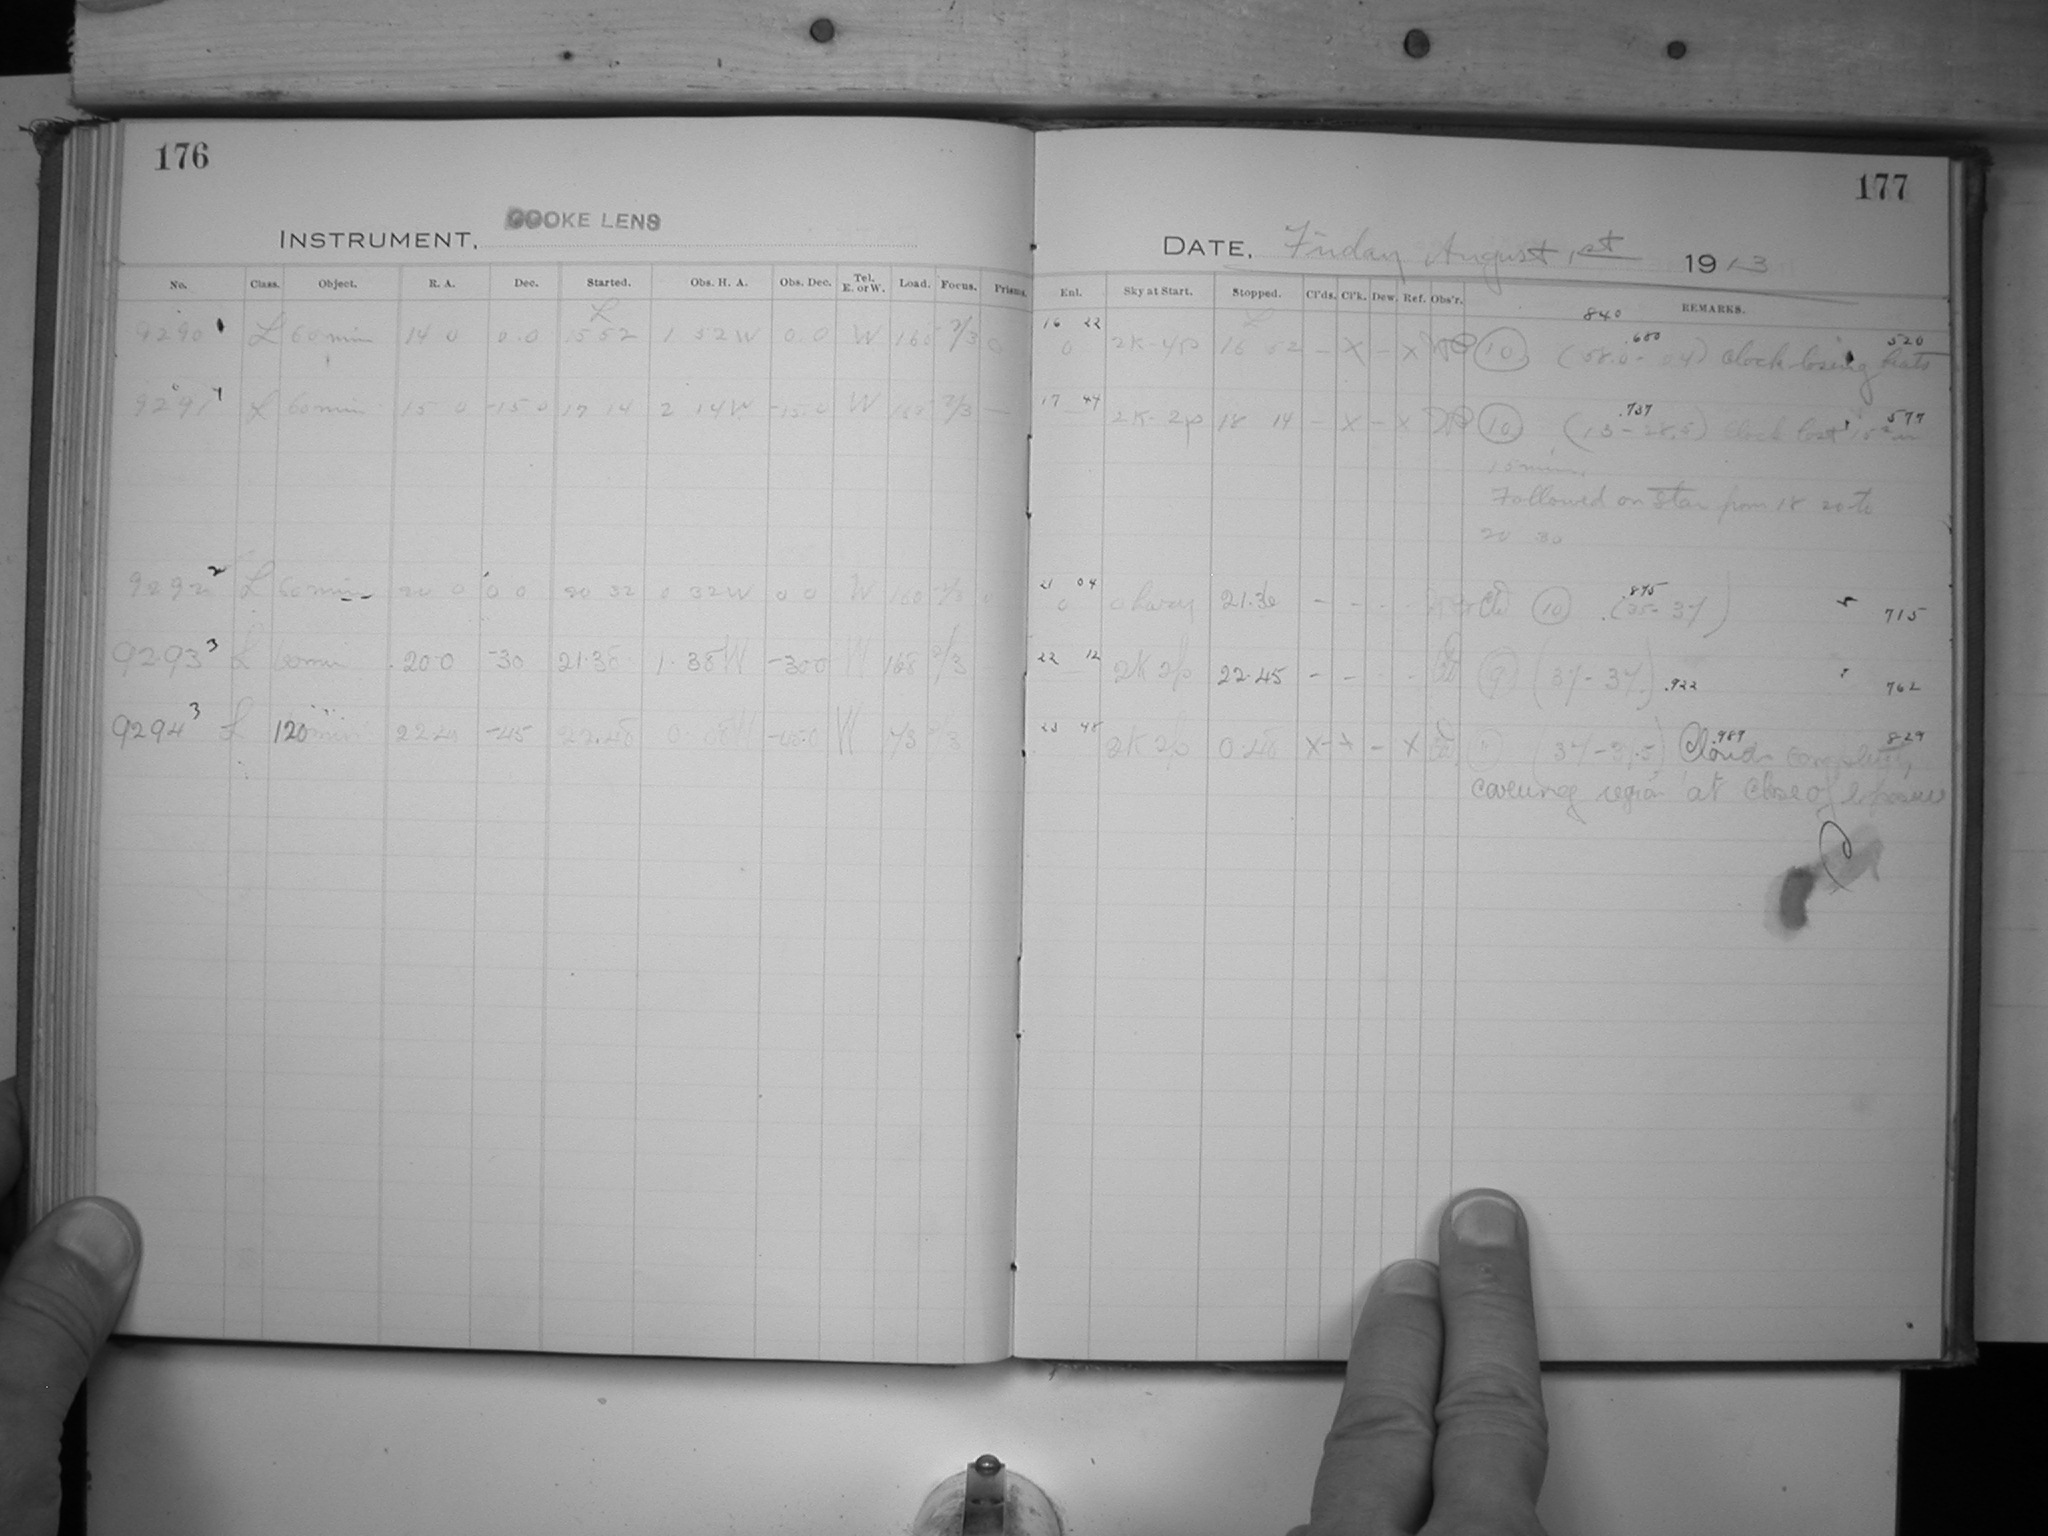 176
INSTRUMENT, COOKE LENS
No. Class. Object. R. A. Dec. Started. Obs. H. A. Obs. Dec. Tel. E. or W. Load. Focus. Prisms.
9290 L 60 min 14 0 0.0 15 52 1 52 W 0.0 W 168 2/3 0
9291 L 60 min 15 0 -15 0 17 14 2 14 W -15.0 W 168 2/3 —
9292 L 60 min 20 0 0 0 20 32 0 32 W 0 0 W 168 2/3 0
9293 3 L 60 min 20 0 -30 21.38 1.38 W -30 0 W 168 2/3
9294 3 L 120 min -45 W
177
DATE, Friday August 1st 1913
Enl. Sky at Start. Stopped. Cl'ds. Cl'k. Dew. Ref. Obs'r. REMARKS.
840
16 22 .680 520
0 2K-4P 16 52 - X - X 10 Clock losing beats
17 44 .737 577
2K-2p 18 14 - X - X 10 (13-28.5) Clock lost in
15 min.
Followed on star from 18 20 to
20 30
21 04 .895
0 21.36 - - 10 715
22 12 2K 2p 22.45 - - 9 (37-37) .922 762
23 48 .989 829
2K 2p X - X (37-37.5) Clouds completely
covering region at close of exposure